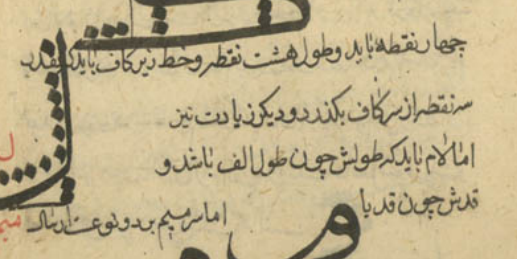 چهار نقطه باید و طول هشت نقطه و خط زیر کاف باید که بقدر
سه نقطه از سر کاف بگذرد و دیگر زیادت نیز
اما لام باید که طولش چون طول الف باشد و
قدش چون قد با
اما سر میم بر دو نوعت
میم